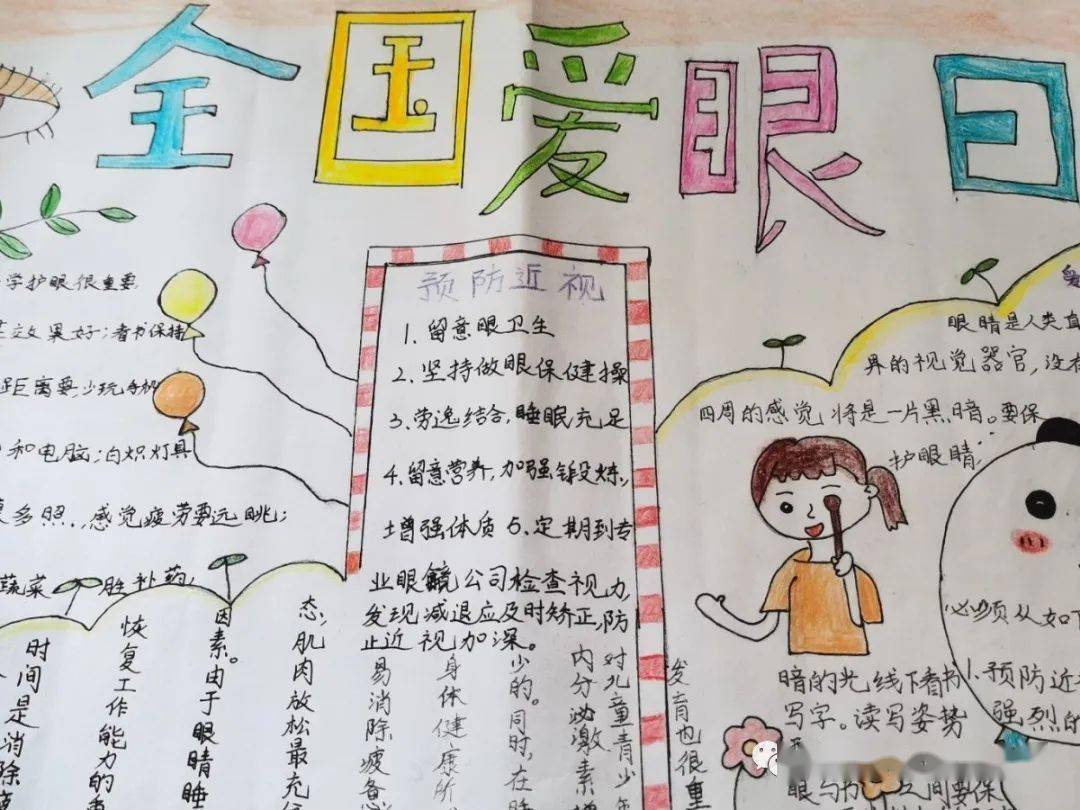 全国爱眼日
学护眼很重要
效果好；看书保持
距离要，少玩手机
和电脑；白炽灯具
多照，感觉疲劳要远眺；
蔬菜 胜补药，
预防近视
1. 留意眼卫生
2. 坚持做眼保健操
3. 劳逸结合，睡眠充足
4. 留意营养，加强锻炼，
增强体质 5. 定期到专
业眼镜公司检查视力，
发现减退应及时矫正，防
止近视加深。
眼睛是人类
界的视觉器官，没有
四周的感觉将是一片黑暗。要保
护眼睛，
必须从如下
暗的光线下看书
写字。读写姿势
1. 预防近
强烈的
发育也很重
对儿童青少年
内分泌激素增
少的。同时，在睡
身体健康所
易消除疲惫
态，肌肉放松最充
因素。由于眼睛睡
恢复工作能力的重
时间是消除疲